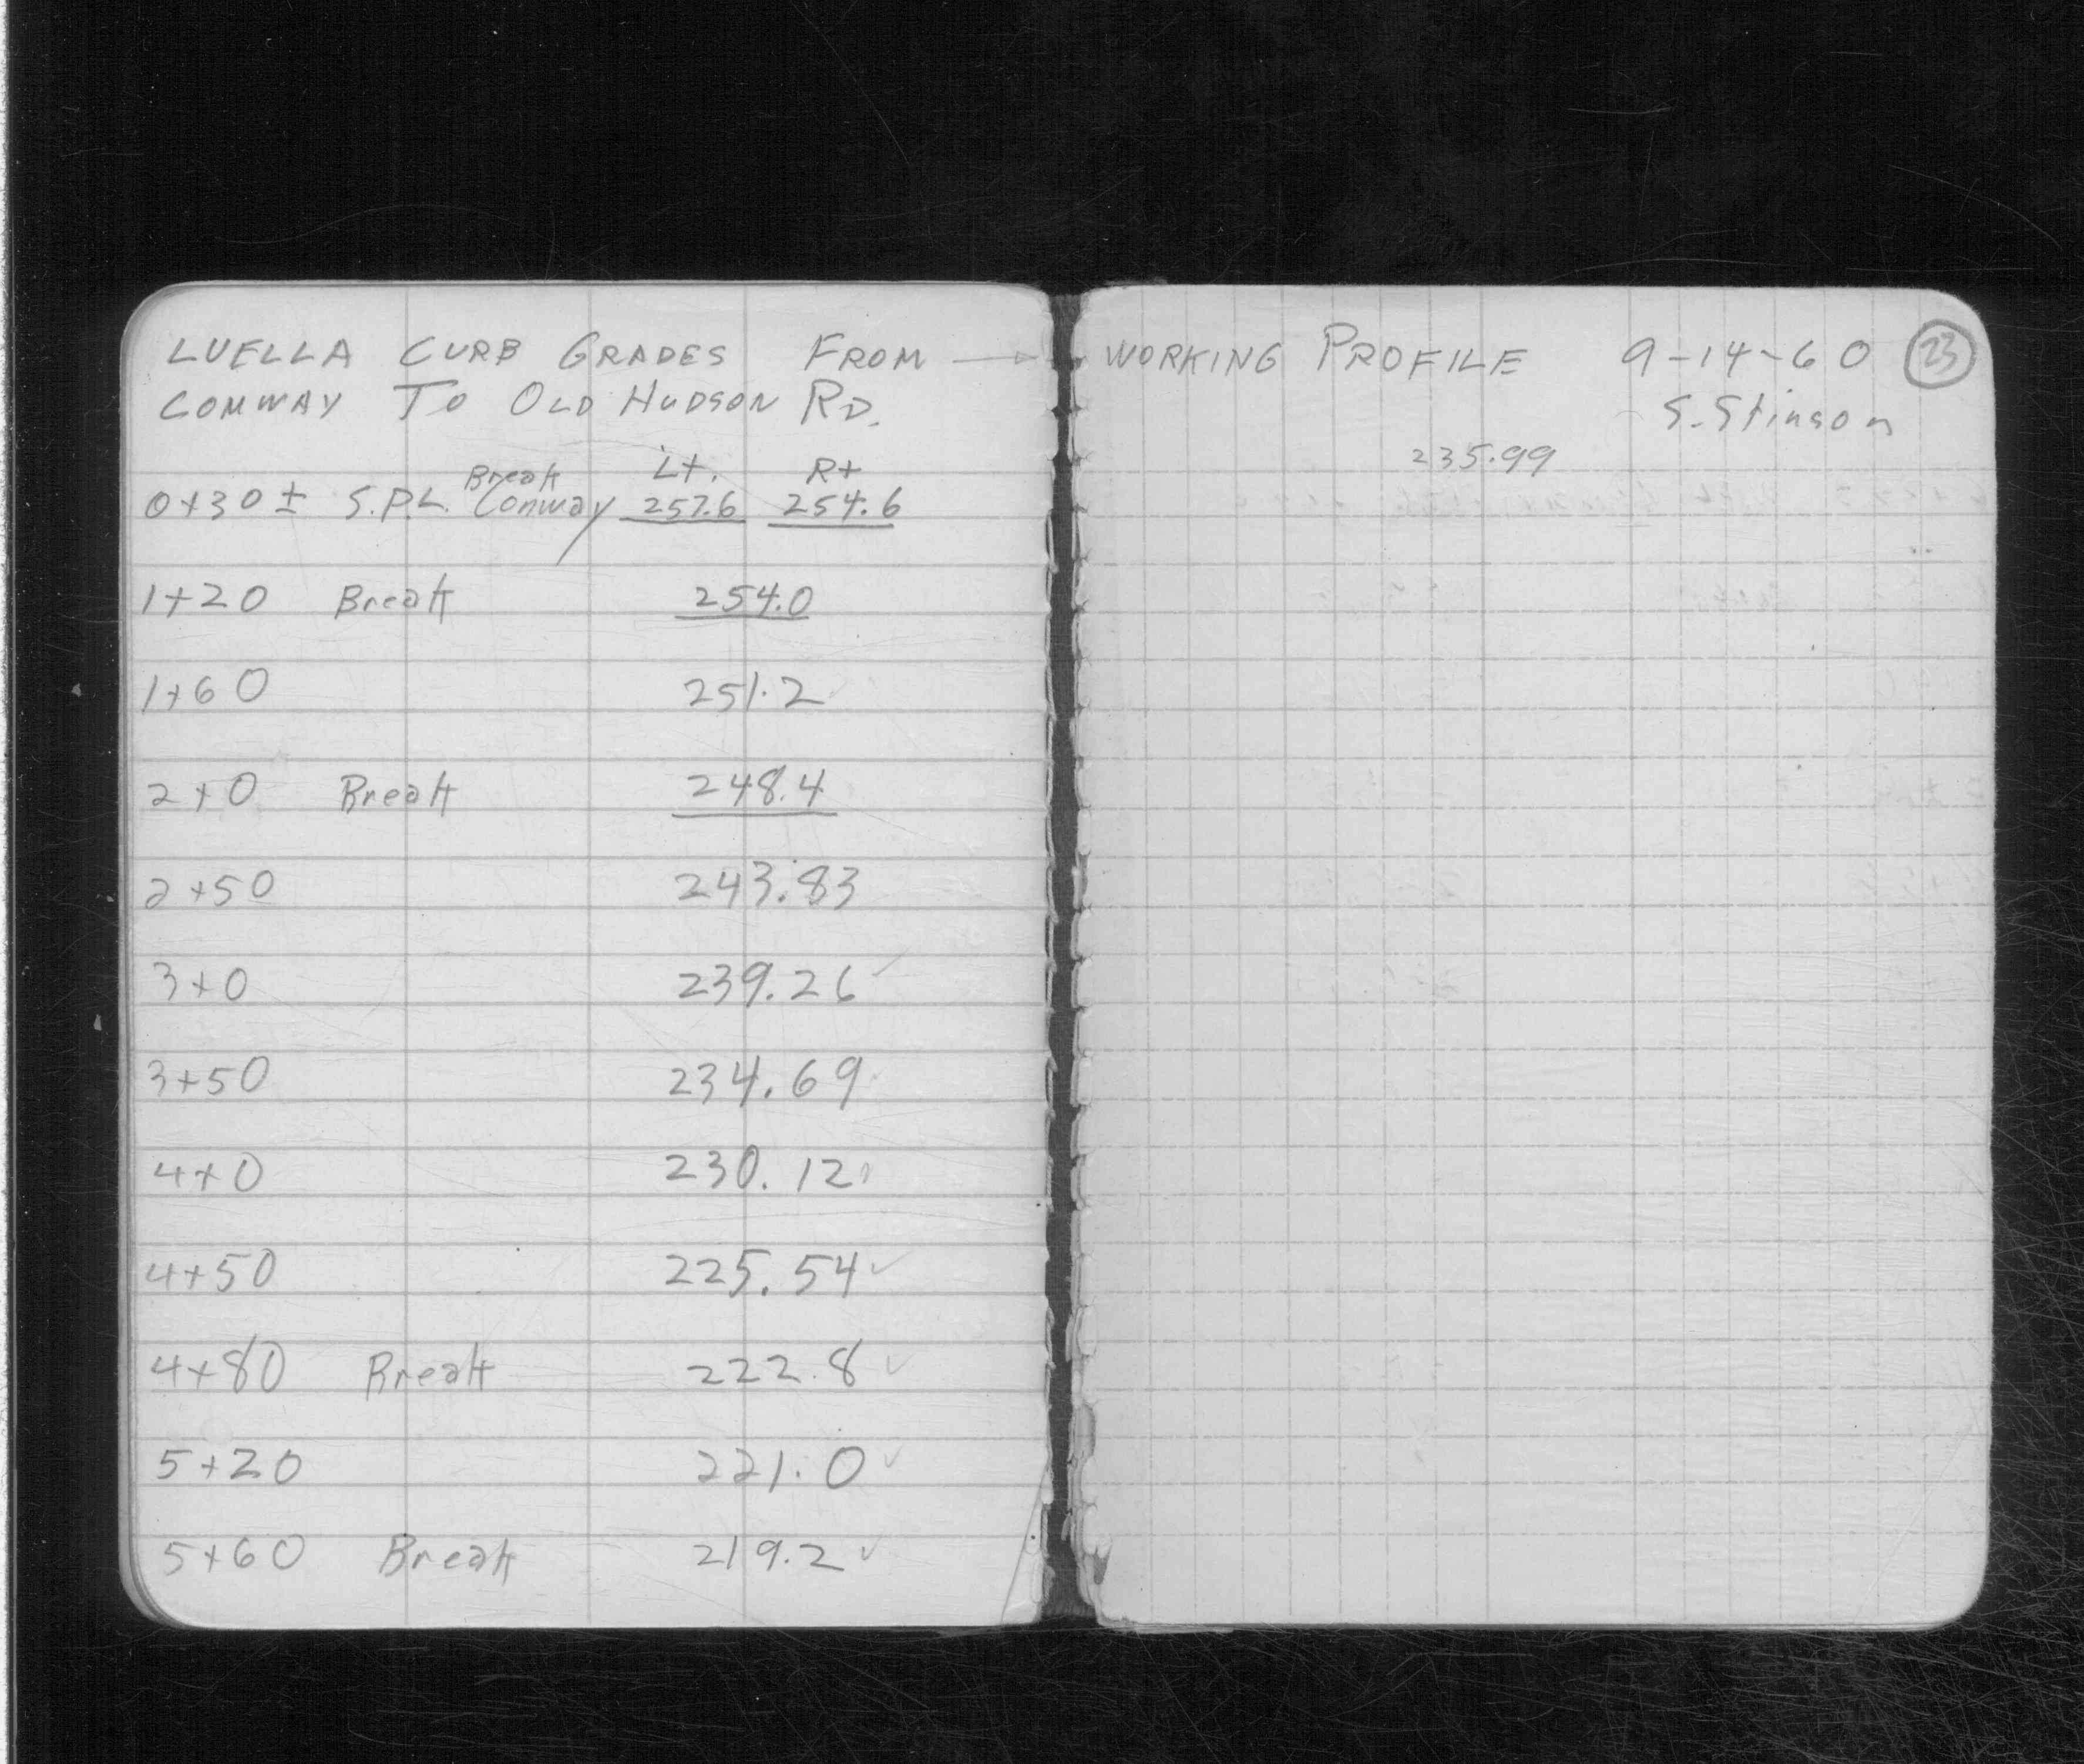 LUELLA CURB GRADES FROM →
CONWAY TO OLD HUDSON RD.
Break Lt. Rt
0+30± S.P.L. Conway 257.6 254.6
1+20 Break 254.0
1+60 251.2
2+0 Break 248.4
2+50 243.83
3+0 239.26 ✓
3+50 234.69
4+0 230.12
4+50 225.54 ✓
4+80 Break 222.8 ✓
5+20 221.0 ✓
5+60 Break 219.2 ✓
WORKING PROFILE 9-14-60 23
S. Stinson
235.99